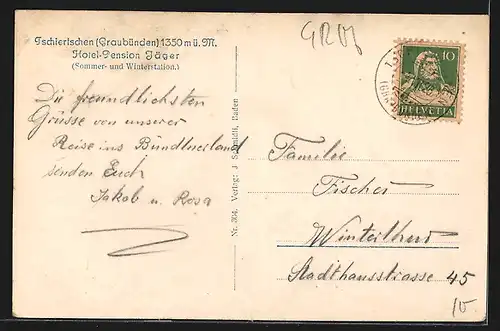 Tschiertschen (Graubünden) 1350 m ü. M.
Hotel-Pension Jäger
(Sommer- und Winterstation.)
GRM
10
HELVETIA
Die freundlichsten
Grüsse von unserer
Reise ins Bündtnerland
senden Euch
Jakob u. Rosa
Nr. 304. Verlag: J. Schmidli, Baden
Familie
Fischer
Winterthur
Stadthausstrasse 45
10.